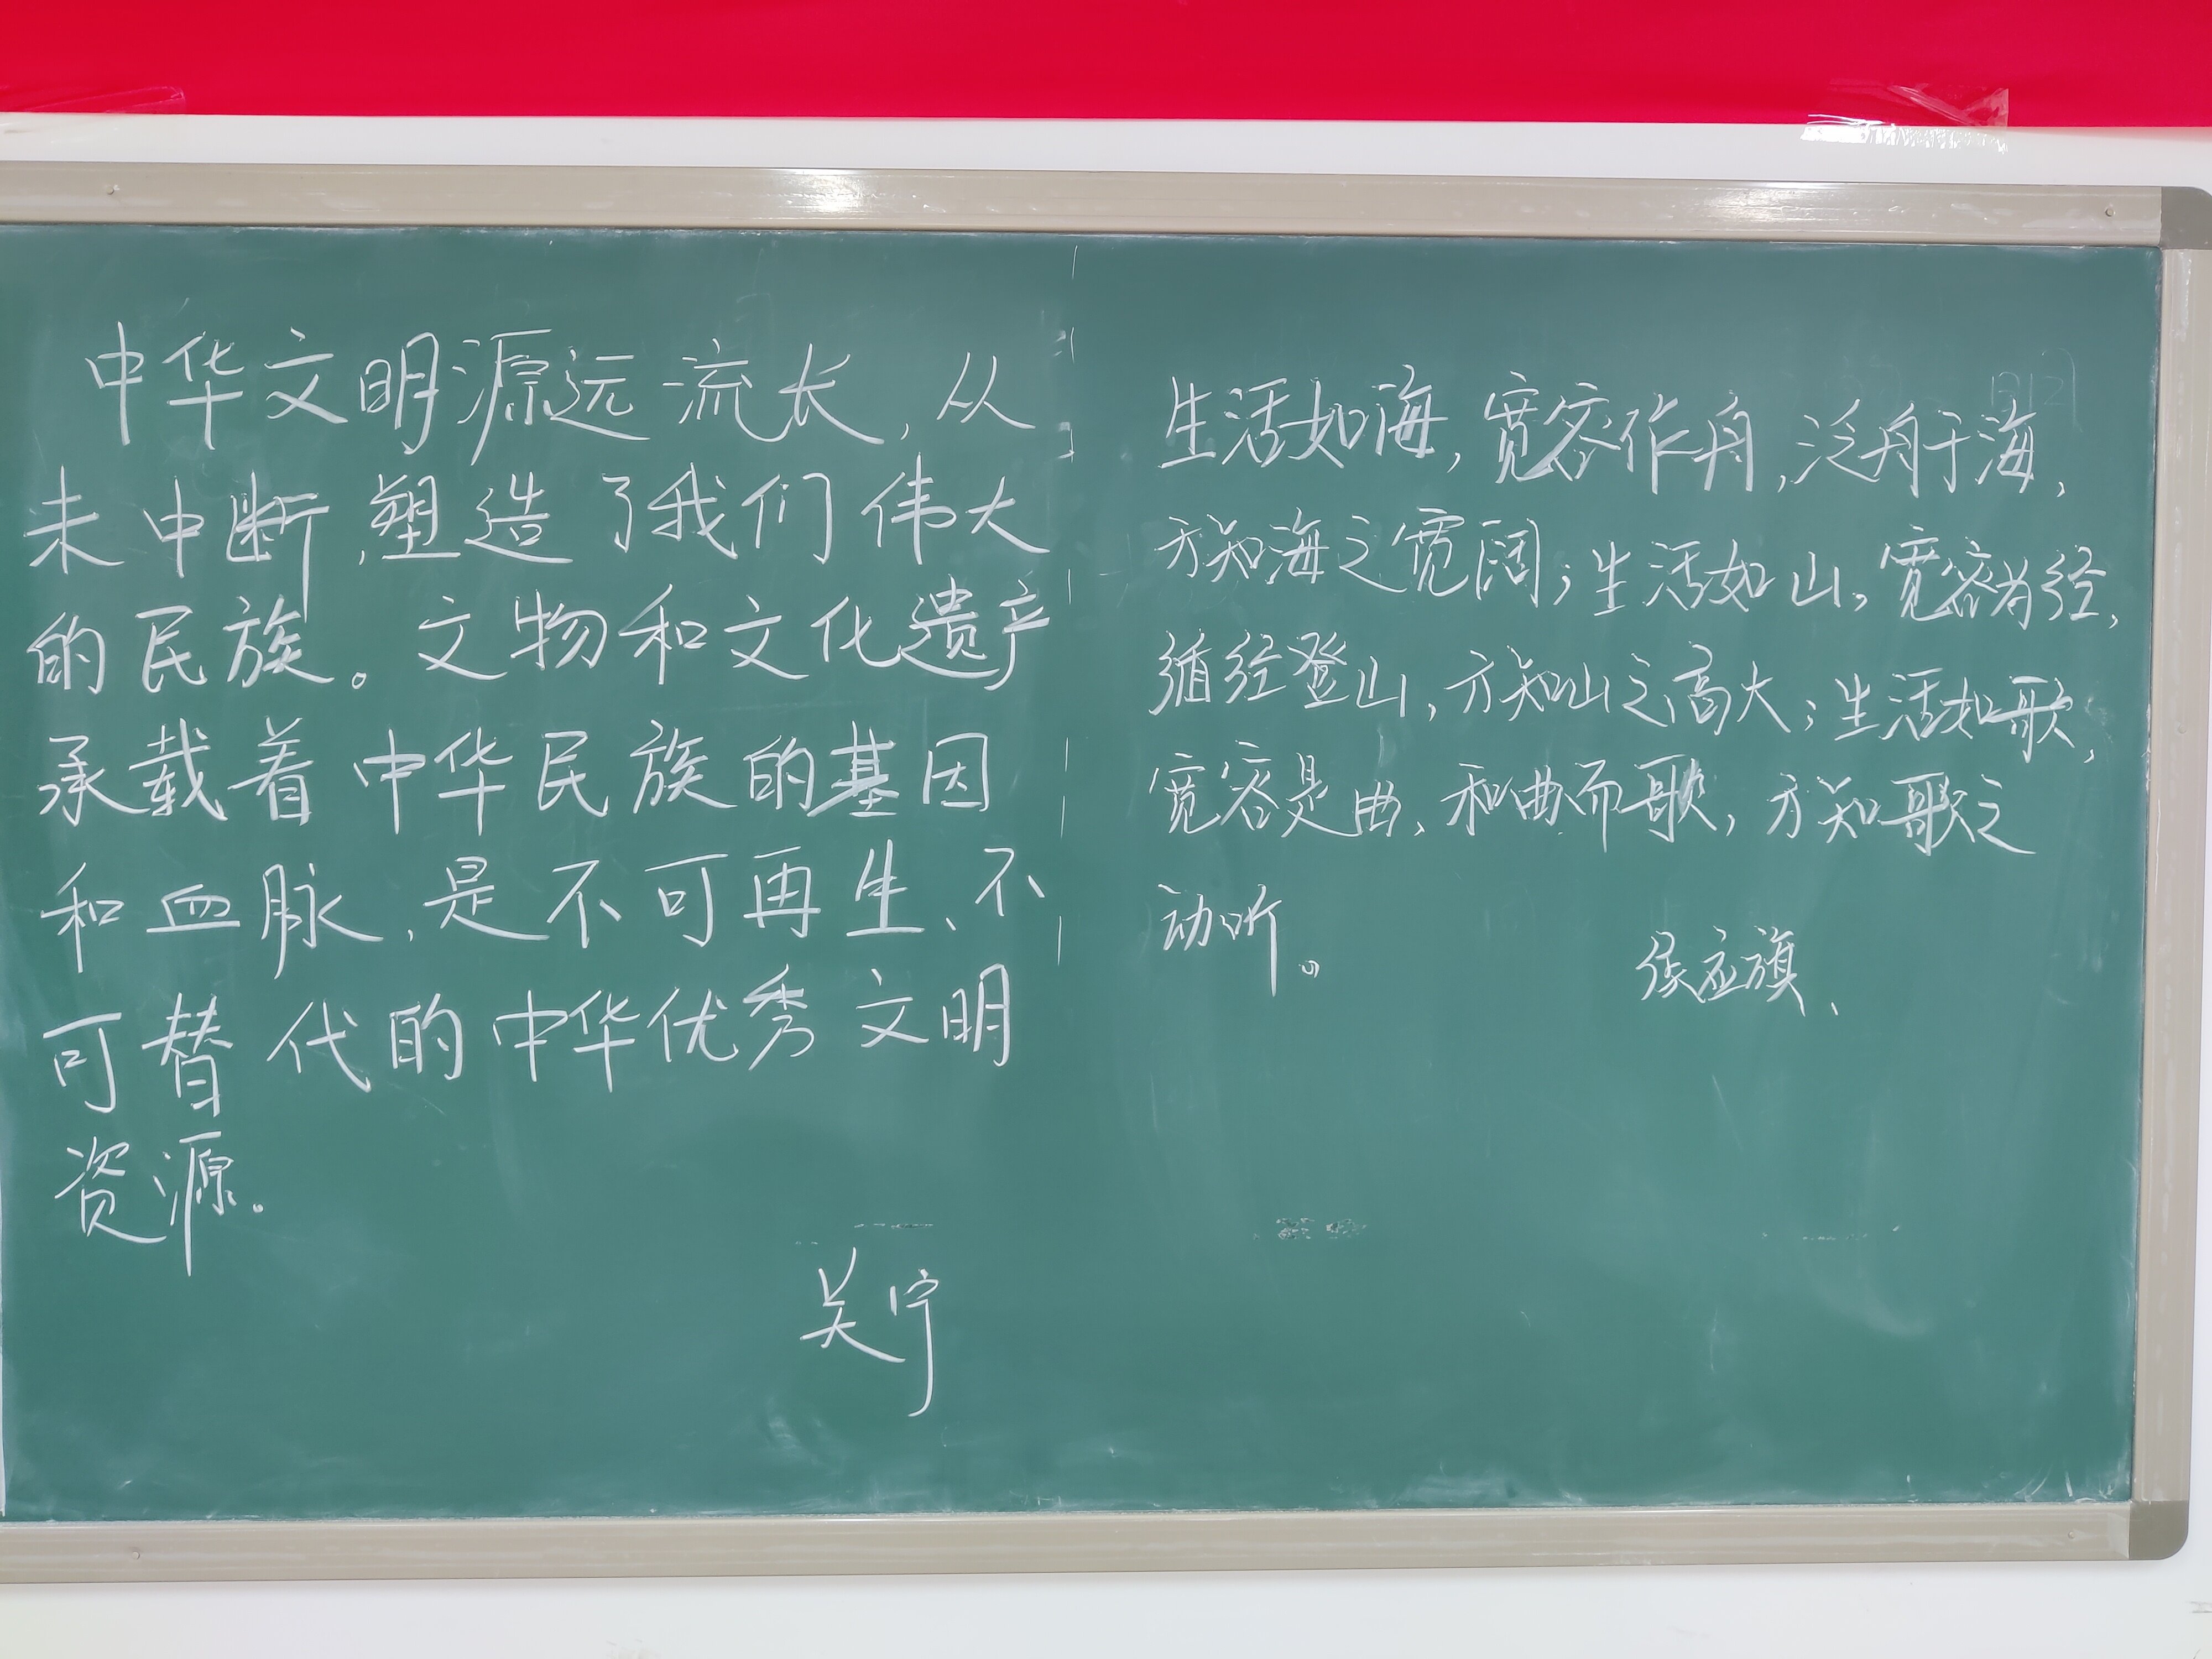 中华文明源远流长,从
未中断,塑造了我们伟大
的民族。文物和文化遗产
承载着中华民族的基因
和血脉,是不可再生、不
可替代的中华优秀文明
资源。
吴宁
生活如海,宽容作舟,泛舟于海,
方知海之宽阔;生活如山,宽容为经,
循经登山,方知山之高大;生活如歌,
宽容是曲,和曲而歌,方知歌之
动听。
侯应旗、